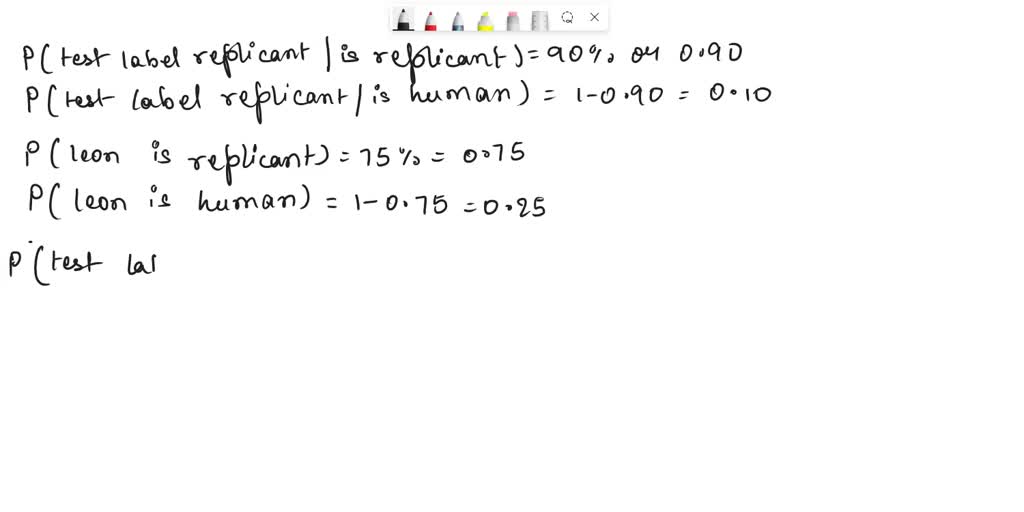 P(test label replicant / is replicant) = 90% or 0.90
P(test label replicant / is human) = 1-0.90 = 0.10
P(leon is replicant) = 75% = 0.75
P(leon is human) = 1-0.75 = 0.25
P(test lal